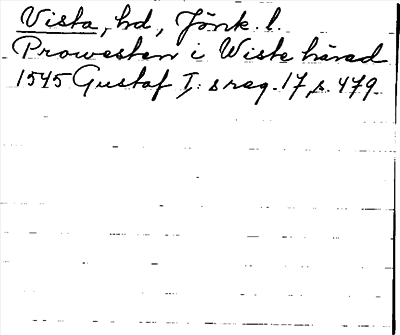 Vista, hd, Jönk. l.
Prowesten i Wiste härad
1545 Gustaf I: s reg. 17, s. 479